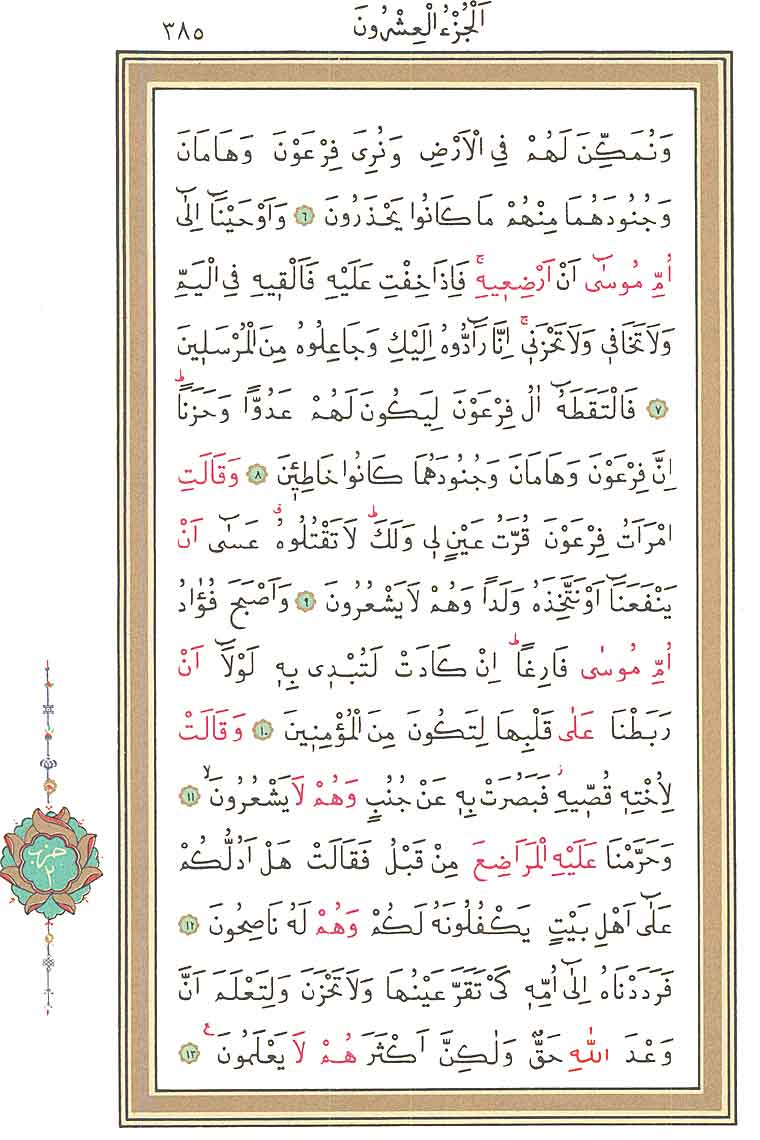 اَلْجُزْءُ الْعِشْرُونَ
٣٨٥
وَنُمَكِّنَ لَهُمْ فِي الْاَرْضِ وَنُرِيَ فِرْعَوْنَ وَهَامَانَ
وَجُنُودَهُمَا مِنْهُمْ مَا كَانُوا يَحْذَرُونَ ٦ وَاَوْحَيْنَٓا اِلٰٓى
اُمِّ مُوسٰٓى اَنْ اَرْضِعٖيهِۚ فَاِذَا خِفْتِ عَلَيْهِ فَاَلْقٖيهِ فِي الْيَمِّ
وَلَا تَخَافٖي وَلَا تَحْزَنٖيۚ اِنَّا رَٓادُّوهُ اِلَيْكِ وَجَاعِلُوهُ مِنَ الْمُرْسَلٖينَ
٧ فَالْتَقَطَهُٓ اٰلُ فِرْعَوْنَ لِيَكُونَ لَهُمْ عَدُوًّا وَحَزَنًاۜ
اِنَّ فِرْعَوْنَ وَهَامَانَ وَجُنُودَهُمَا كَانُوا خَاطِـٖٔينَ ٨ وَقَالَتِ
امْرَاَتُ فِرْعَوْنَ قُرَّتُ عَيْنٍ لٖي وَلَكَۜ لَا تَقْتُلُوهُۗ عَسٰٓى اَنْ
يَنْفَعَنَٓا اَوْ نَتَّخِذَهُ وَلَدًا وَهُمْ لَا يَشْعُرُونَ ٩ وَاَصْبَحَ فُؤٰادُ
اُمِّ مُوسٰى فَارِغًاۜ اِنْ كَادَتْ لَتُبْدٖي بِهٖ لَوْلَٓا اَنْ
رَبَطْنَا عَلٰى قَلْبِهَا لِتَكُونَ مِنَ الْمُؤْمِنٖينَ ١٠ وَقَالَتْ
لِاُخْتِهٖ قُصّٖيهِؗ فَبَصُرَتْ بِهٖ عَنْ جُنُبٍ وَهُمْ لَا يَشْعُرُونَۙ ١١
وَحَرَّمْنَا عَلَيْهِ الْمَرَاضِعَ مِنْ قَبْلُ فَقَالَتْ هَلْ اَدُلُّكُمْ
عَلٰٓى اَهْلِ بَيْتٍ يَكْفُلُونَهُ لَكُمْ وَهُمْ لَهُ نَاصِحُونَ ١٢
فَرَدَدْنَاهُ اِلٰٓى اُمِّهٖ كَيْ تَقَرَّ عَيْنُهَا وَلَا تَحْزَنَ وَلِتَعْلَمَ اَنَّ
وَعْدَ اللّٰهِ حَقٌّ وَلٰكِنَّ اَكْثَرَهُمْ لَا يَعْلَمُونَࣖ ١٣
حزب
٢